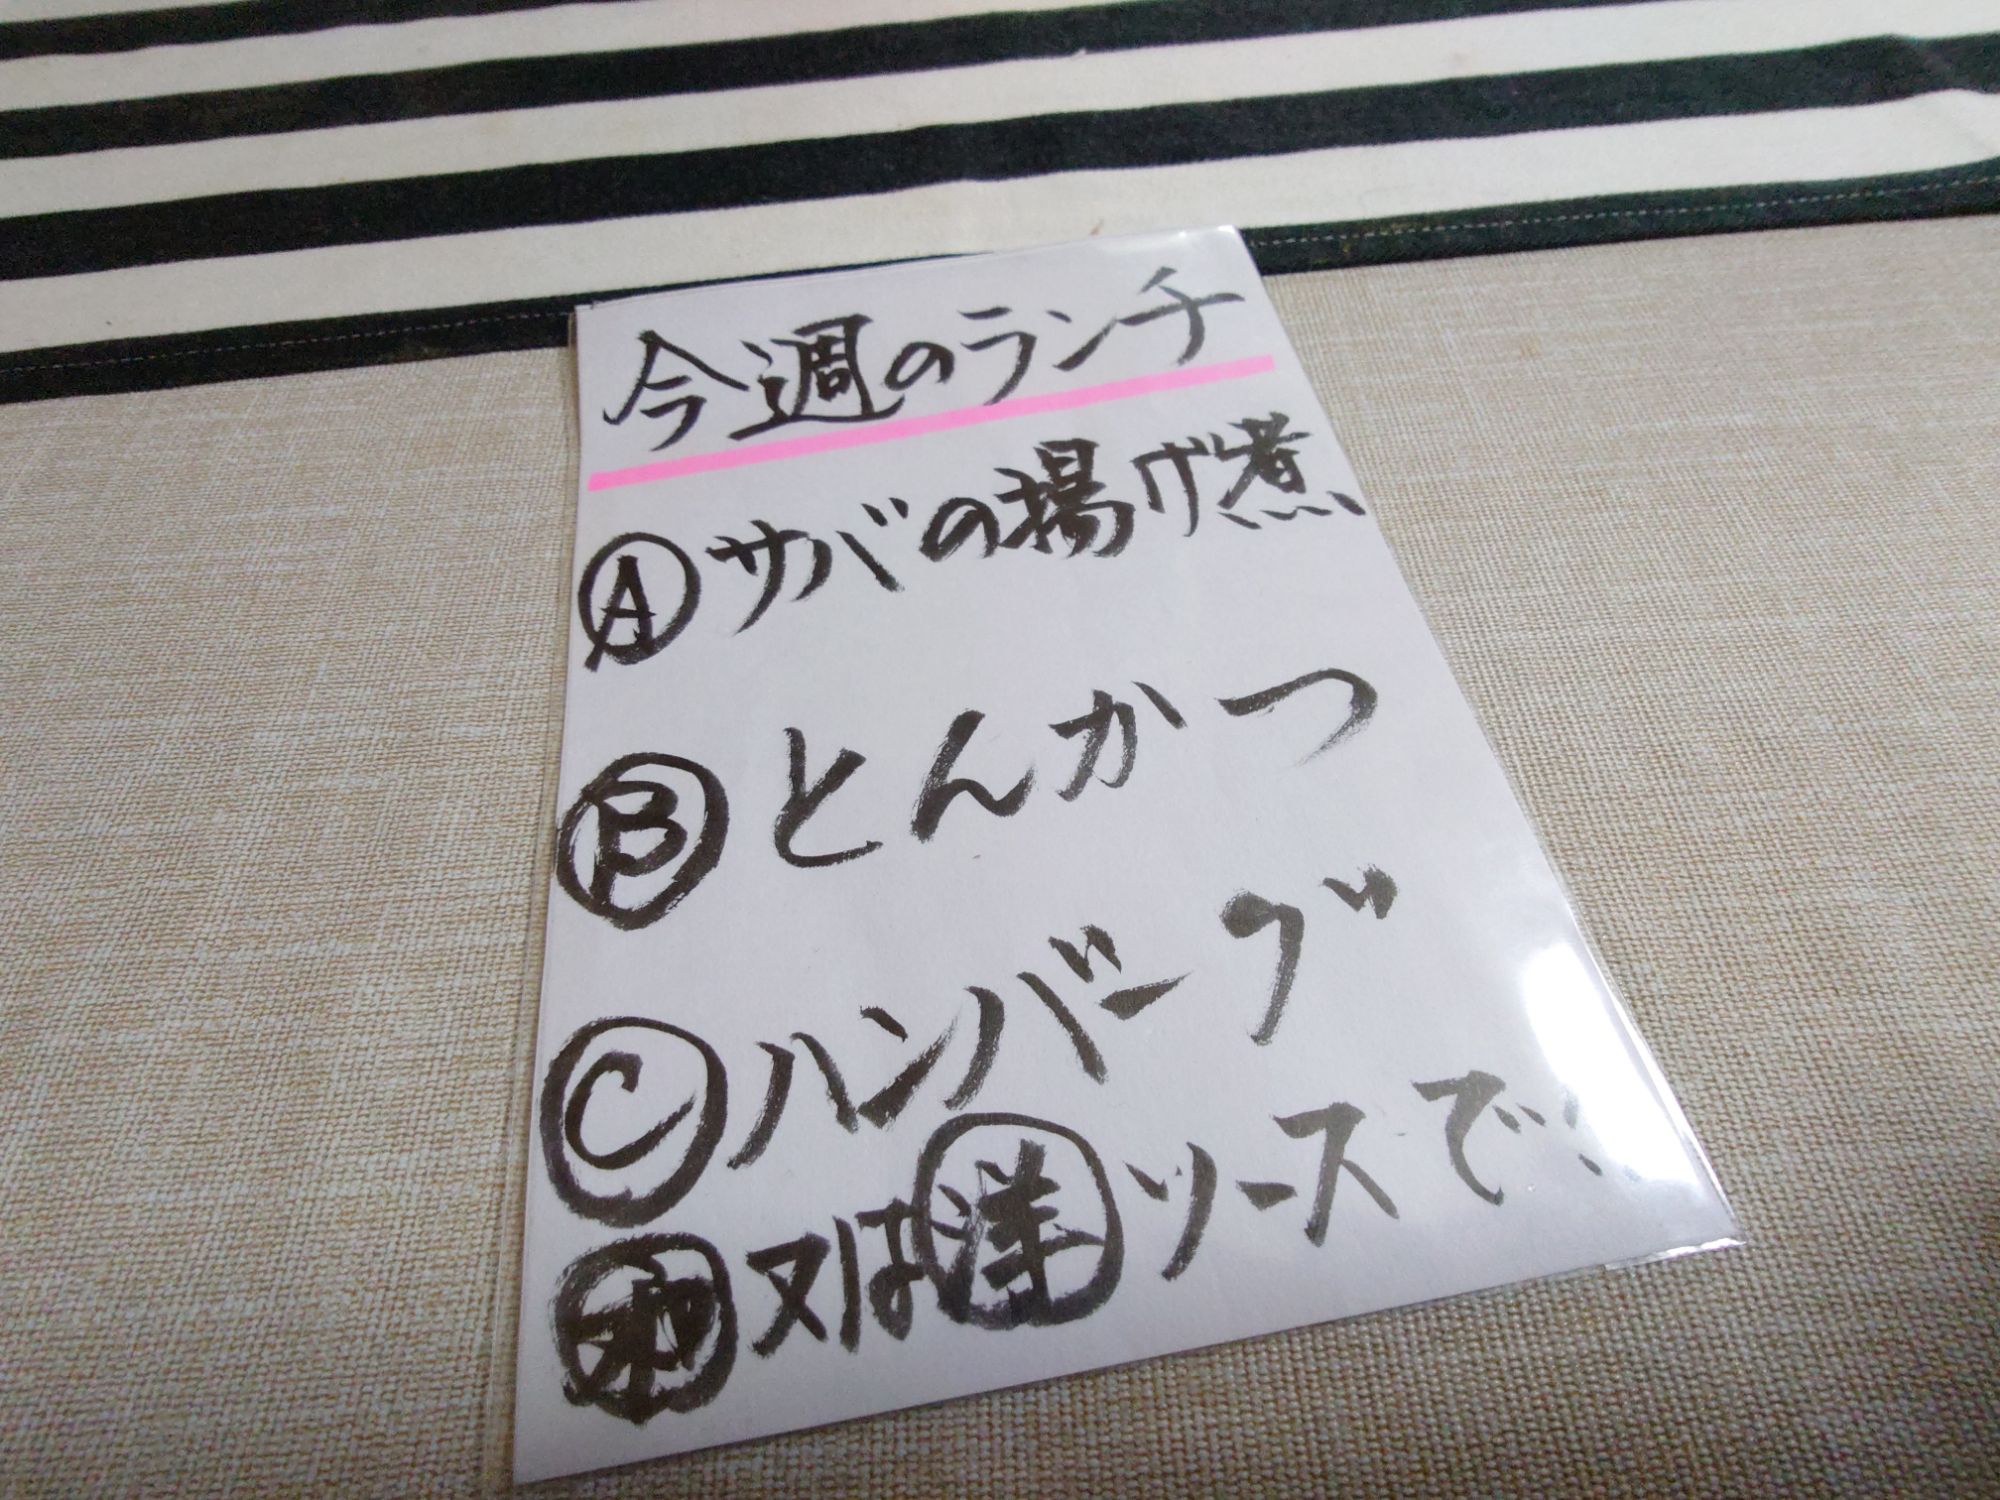 今週のランチ
Ⓐサバの揚げ煮
Ⓑとんかつ
Ⓒハンバーグ
㊥和又は洋ソースで